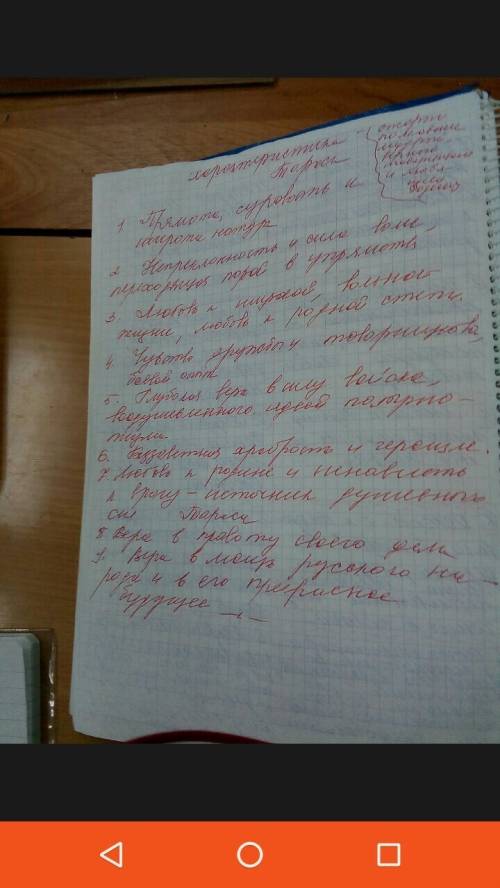 характеристика
Тараса
1. Прямота, суровость и
широта натур
2. Непреклонность и сила воли,
переходящая порой в упрямство
3. Любовь к широкой, вольной
жизни, любовь к родной степи.
4. Чувство дружбы и товарищества,
боевой
5. Глубокая вера в силу войска,
воодушевленного идеей патрио-
тизма
6. Беззаветная храбрость и героизм.
7. Любовь к родине и ненависть
к врагу - источник душевных
сил Тараса
8. Вера в правоту своего дела
9. Вера в мощь русского на-
рода и в его прекрасное
будущее